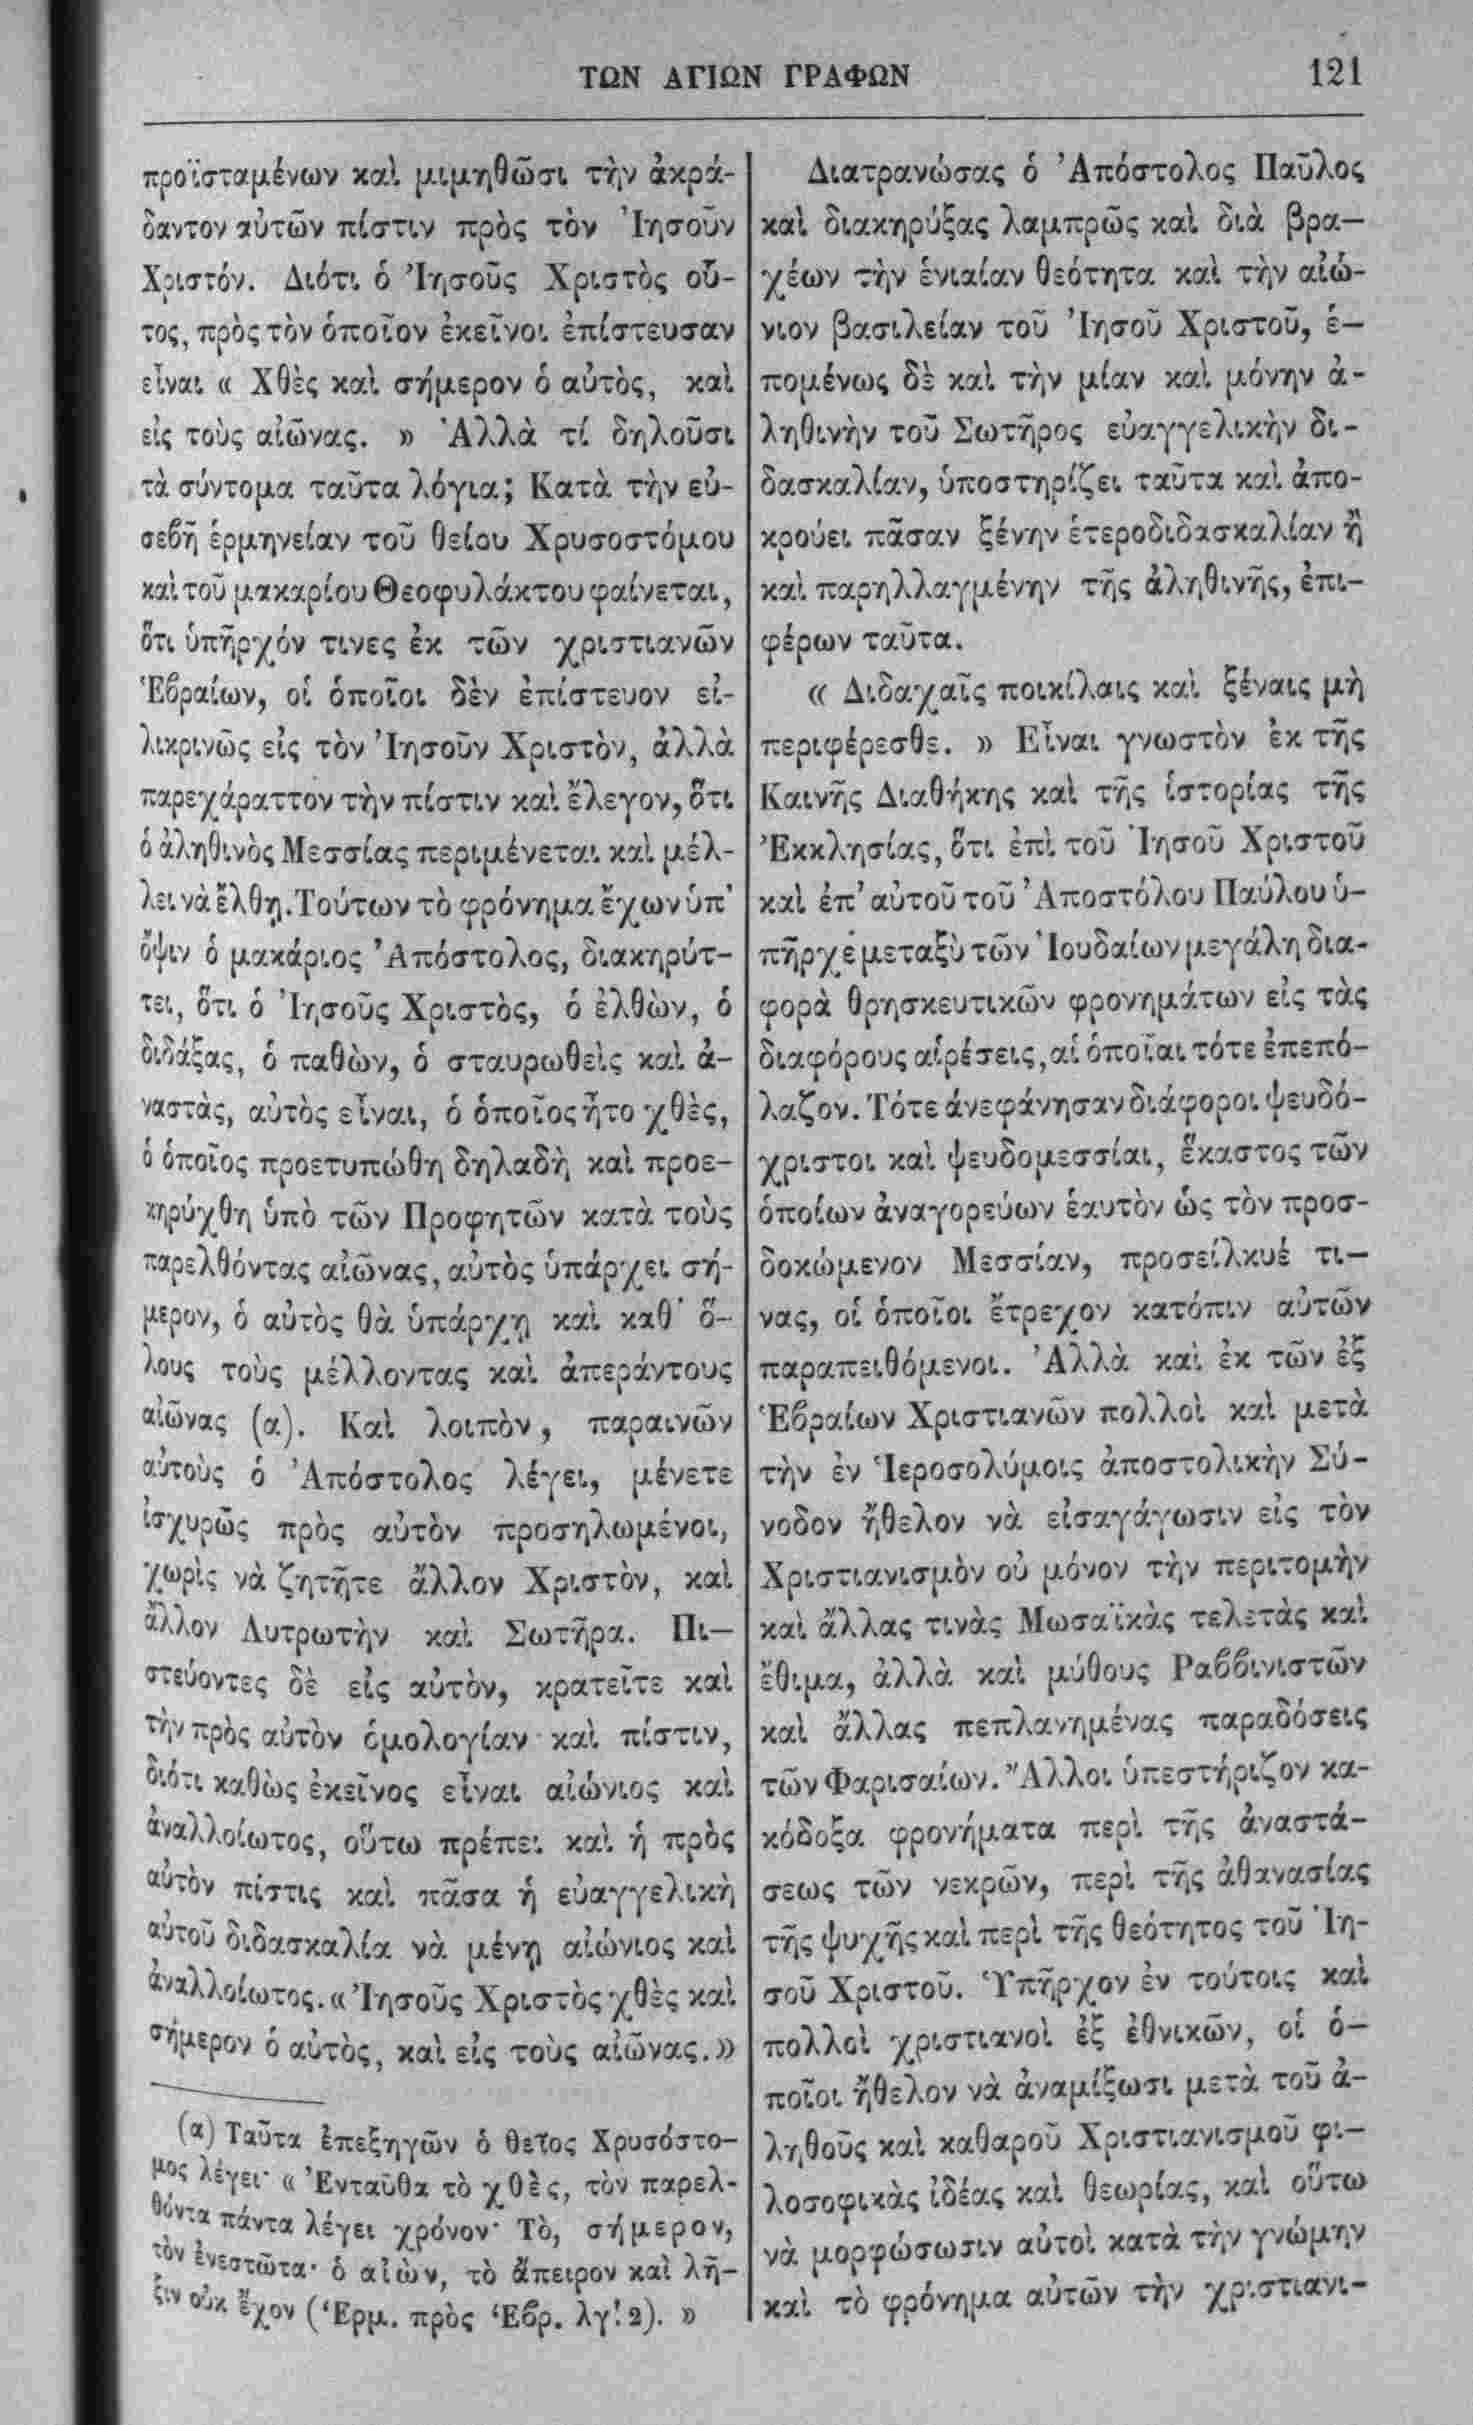 ΤΩΝ ΑΓΙΩΝ ΓΡΑΦΩΝ 121
προϊσταμένων καὶ μιμηθῶσι τὴν ἀκρά-
δαντον αὐτῶν πίστιν πρὸς τὸν Ἰησοῦν
Χριστόν. Διότι ὁ Ἰησοῦς Χριστὸς οὗ-
τος, πρὸς τὸν ὁποῖον ἐκεῖνοι ἐπίστευσαν
εἶναι « Χθὲς καὶ σήμερον ὁ αὐτὸς, καὶ
εἰς τοὺς αἰῶνας. » Ἀλλὰ τί δηλοῦσι
τὰ σύντομα ταῦτα λόγια; Κατὰ τὴν εὐ-
σεβῆ ἑρμηνείαν τοῦ θείου Χρυσοστόμου
καὶ τοῦ μακαρίου Θεοφυλάκτου φαίνεται,
ὅτι ὑπῆρχόν τινες ἐκ τῶν χριστιανῶν
Ἑβραίων, οἱ ὁποῖοι δὲν ἐπίστευον εἰ-
λικρινῶς εἰς τὸν Ἰησοῦν Χριστὸν, ἀλλὰ
παρεχάραττον τὴν πίστιν καὶ ἔλεγον, ὅτι
ὁ ἀληθινὸς Μεσσίας περιμένεται καὶ μέλ-
λει νὰ ἔλθῃ. Τούτων τὸ φρόνημα ἔχων ὑπ'
ὄψιν ὁ μακάριος Ἀπόστολος, διακηρύτ-
τει, ὅτι ὁ Ἰησοῦς Χριστὸς, ὁ ἐλθὼν, ὁ
διδάξας, ὁ παθὼν, ὁ σταυρωθεὶς καὶ ἀ-
ναστὰς, αὐτὸς εἶναι, ὁ ὁποῖος ἦτο χθὲς,
ὁ ὁποῖος προετυπώθη δηλαδὴ καὶ προε-
κηρύχθη ὑπὸ τῶν Προφητῶν κατὰ τοὺς
παρελθόντας αἰῶνας, αὐτὸς ὑπάρχει σή-
μερον, ὁ αὐτὸς θὰ ὑπάρχῃ καὶ καθ' ὅ-
λους τοὺς μέλλοντας καὶ ἀπεράντους
αἰῶνας (α). Καὶ λοιπὸν, παραινῶν
αὐτοὺς ὁ Ἀπόστολος λέγει, μένετε
ἰσχυρῶς πρὸς αὐτὸν προσηλωμένοι,
χωρὶς νὰ ζητῆτε ἄλλον Χριστὸν, καὶ
ἄλλον Λυτρωτὴν καὶ Σωτῆρα. Πι-
στεύοντες δὲ εἰς αὐτὸν, κρατεῖτε καὶ
τὴν πρὸς αὐτὸν ὁμολογίαν καὶ πίστιν,
διότι καθὼς ἐκεῖνος εἶναι αἰώνιος καὶ
ἀναλλοίωτος, οὕτω πρέπει καὶ ἡ πρὸς
αὐτὸν πίστις καὶ πᾶσα ἡ εὐαγγελικὴ
αὐτοῦ διδασκαλία νὰ μένῃ αἰώνιος καὶ
ἀναλλοίωτος. « Ἰησοῦς Χριστὸς χθὲς καὶ
σήμερον ὁ αὐτὸς, καὶ εἰς τοὺς αἰῶνας. »
(α) Ταῦτα ἐπεξηγῶν ὁ θεῖος Χρυσόστο-
μος λέγει· « Ἐνταῦθα τὸ χθὲς, τὸν παρελ-
θόντα πάντα λέγει χρόνον· Τὸ, σήμερον,
τὸν ἐνεστῶτα· ὁ αἰὼν, τὸ ἄπειρον καὶ λῆ-
ξιν οὐκ ἔχον (Ἑρμ. πρὸς Ἑβρ. λγ! 2). »
Διατρανώσας ὁ Ἀπόστολος Παῦλος
καὶ διακηρύξας λαμπρῶς καὶ διὰ βρα-
χέων τὴν ἑνιαίαν θεότητα καὶ τὴν αἰώ-
νιον βασιλείαν τοῦ Ἰησοῦ Χριστοῦ, ἑ-
πομένως δὲ καὶ τὴν μίαν καὶ μόνην ἀ-
ληθινὴν τοῦ Σωτῆρος εὐαγγελικὴν δι-
δασκαλίαν, ὑποστηρίζει ταῦτα καὶ ἀπο-
κρούει πᾶσαν ξένην ἑτεροδιδασκαλίαν ἢ
καὶ παρηλλαγμένην τῆς ἀληθινῆς, ἐπι-
φέρων ταῦτα.
« Διδαχαῖς ποικίλαις καὶ ξέναις μὴ
περιφέρεσθε. » Εἶναι γνωστὸν ἐκ τῆς
Καινῆς Διαθήκης καὶ τῆς ἱστορίας τῆς
Ἐκκλησίας, ὅτι ἐπὶ τοῦ Ἰησοῦ Χριστοῦ
καὶ ἐπ' αὐτοῦ τοῦ Ἀποστόλου Παύλου ὑ-
πῆρχε μεταξὺ τῶν Ἰουδαίων μεγάλη δια-
φορὰ θρησκευτικῶν φρονημάτων εἰς τὰς
διαφόρους αἱρέσεις, αἱ ὁποῖαι τότε ἐπεπό-
λαζον. Τότε ἀνεφάνησαν διάφοροι ψευδό-
χριστοι καὶ ψευδομεσσίαι, ἕκαστος τῶν
ὁποίων ἀναγορεύων ἑαυτὸν ὡς τὸν προσ-
δοκώμενον Μεσσίαν, προσείλκυέ τι-
νας, οἱ ὁποῖοι ἔτρεχον κατόπιν αὐτῶν
παραπειθόμενοι. Ἀλλὰ καὶ ἐκ τῶν ἐξ
Ἑβραίων Χριστιανῶν πολλοὶ καὶ μετὰ
τὴν ἐν Ἱεροσολύμοις ἀποστολικὴν Σύ-
νοδον ἤθελον νὰ εἰσαγάγωσιν εἰς τὸν
Χριστιανισμὸν οὐ μόνον τὴν περιτομὴν
καὶ ἄλλας τινὰς Μωσαϊκὰς τελετὰς καὶ
ἔθιμα, ἀλλὰ καὶ μύθους Ραββινιστῶν
καὶ ἄλλας πεπλανημένας παραδόσεις
τῶν Φαρισαίων. Ἄλλοι ὑπεστήριζον κα-
κόδοξα φρονήματα περὶ τῆς ἀναστά-
σεως τῶν νεκρῶν, περὶ τῆς ἀθανασίας
τῆς ψυχῆς καὶ περὶ τῆς θεότητος τοῦ Ἰη-
σοῦ Χριστοῦ. Ὑπῆρχον ἐν τούτοις καὶ
πολλοὶ χριστιανοὶ ἐξ ἐθνικῶν, οἱ ὁ-
ποῖοι ἤθελον νὰ ἀναμίξωσι μετὰ τοῦ ἀ-
ληθοῦς καὶ καθαροῦ Χριστιανισμοῦ φι-
λοσοφικὰς ἰδέας καὶ θεωρίας, καὶ οὕτω
νὰ μορφώσωσιν αὐτοὶ κατὰ τὴν γνώμην
καὶ τὸ φρόνημα αὐτῶν τὴν χριστιανι-